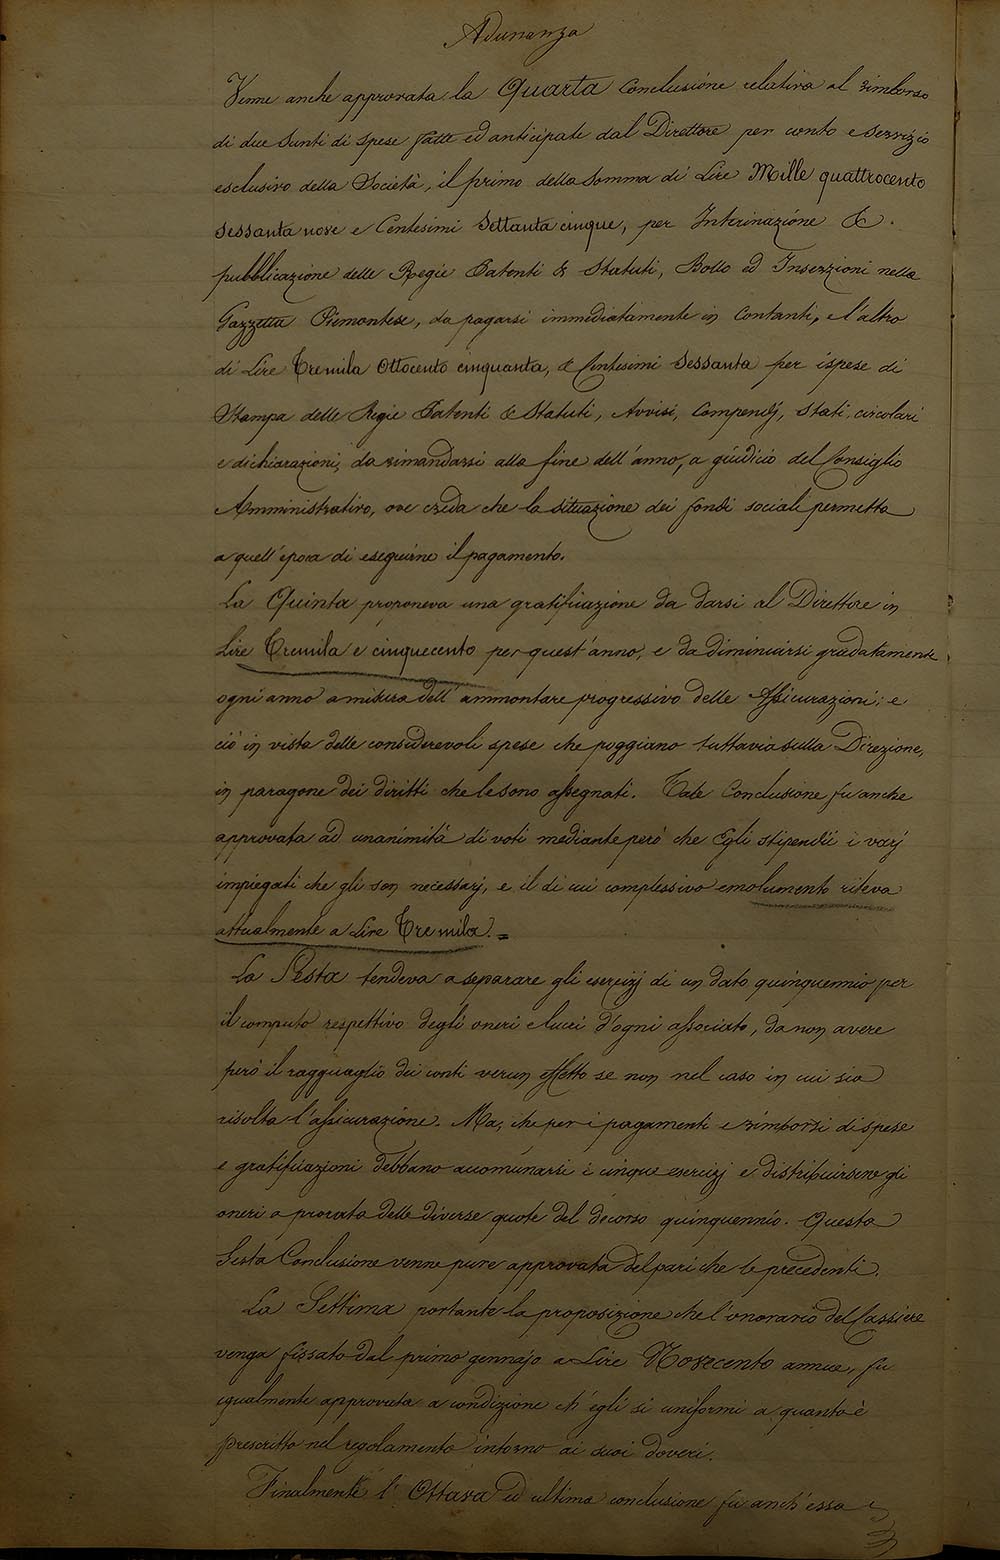 Adunanza
Venne anche approvata la Quarta Conclusione relativa al rimborso
di due Sunti di Spese fatte ed anticipate dal Direttore per conto e servizio
esclusivo della Società, il primo della Somma di Lire Mille quattrocento
sessanta nove e Centesimi Settanta cinque, per Interinazione &
pubblicazione delle Regie Patenti & Statuti, Bollo ed Inserzioni nella
Gazzetta Piemontese, da pagarsi immediatamente in Contanti, e l'altro
di Lire Tremila Ottocento cinquanta, & Centesimi Sessanta per ispese di
Stampa delle Regie Patenti & Statuti, Avvisi, Compendj, Stati, circolari
e dichiarazioni, da rimandarsi alla fine dell'anno, a giudicio del Consiglio
Amministrativo, ove creda che la situazione dei fondi sociali permetta
a quell'epoca di eseguirne il pagamento.
La Quinta proponeva una gratificazione da darsi al Direttore in
Lire Tremila e cinquecento per quest'anno, e da diminuirsi gradatamente
ogni anno a misura dell'ammontare progressivo delle Assicurazioni; e
ciò in vista delle considerevoli spese che poggiano tuttavia sulla Direzione,
in paragone dei diritti che le sono assegnati. Tale Conclusione fu anche
approvata ad unanimità di voti mediante però che Egli stipendii i varj
impiegati che gli son necessarj, e il di cui complessivo emolumento rileva
attualmente a Lire Tremila. =
La Sesta tendeva a separare gli esercizj di un dato quinquennio per
il computo respettivo degli oneri e lucri d'ogni associato, da non avere
però il ragguaglio dei conti verun effetto se non nel caso in cui sia
risolta l'assicurazione. Ma, che per i pagamenti e rimborsi di spese
e gratificazioni debbano accomunarsi i cinque esercizj e distribuirsene gli
oneri a prorata delle diverse quote del decorso quinquennio. Questa
Sesta Conclusione venne pure approvata del pari che le precedenti.
La Settima portante la proposizione che l'onorario del Cassiere
venga fissato dal primo gennajo a Lire Novecento annue, fu
egualmente approvata a condizione ch'egli si uniformi a quanto è
prescritto nel regolamento intorno ai suoi doveri.
Finalmente l'Ottava ed ultima conclusione fu anch'essa